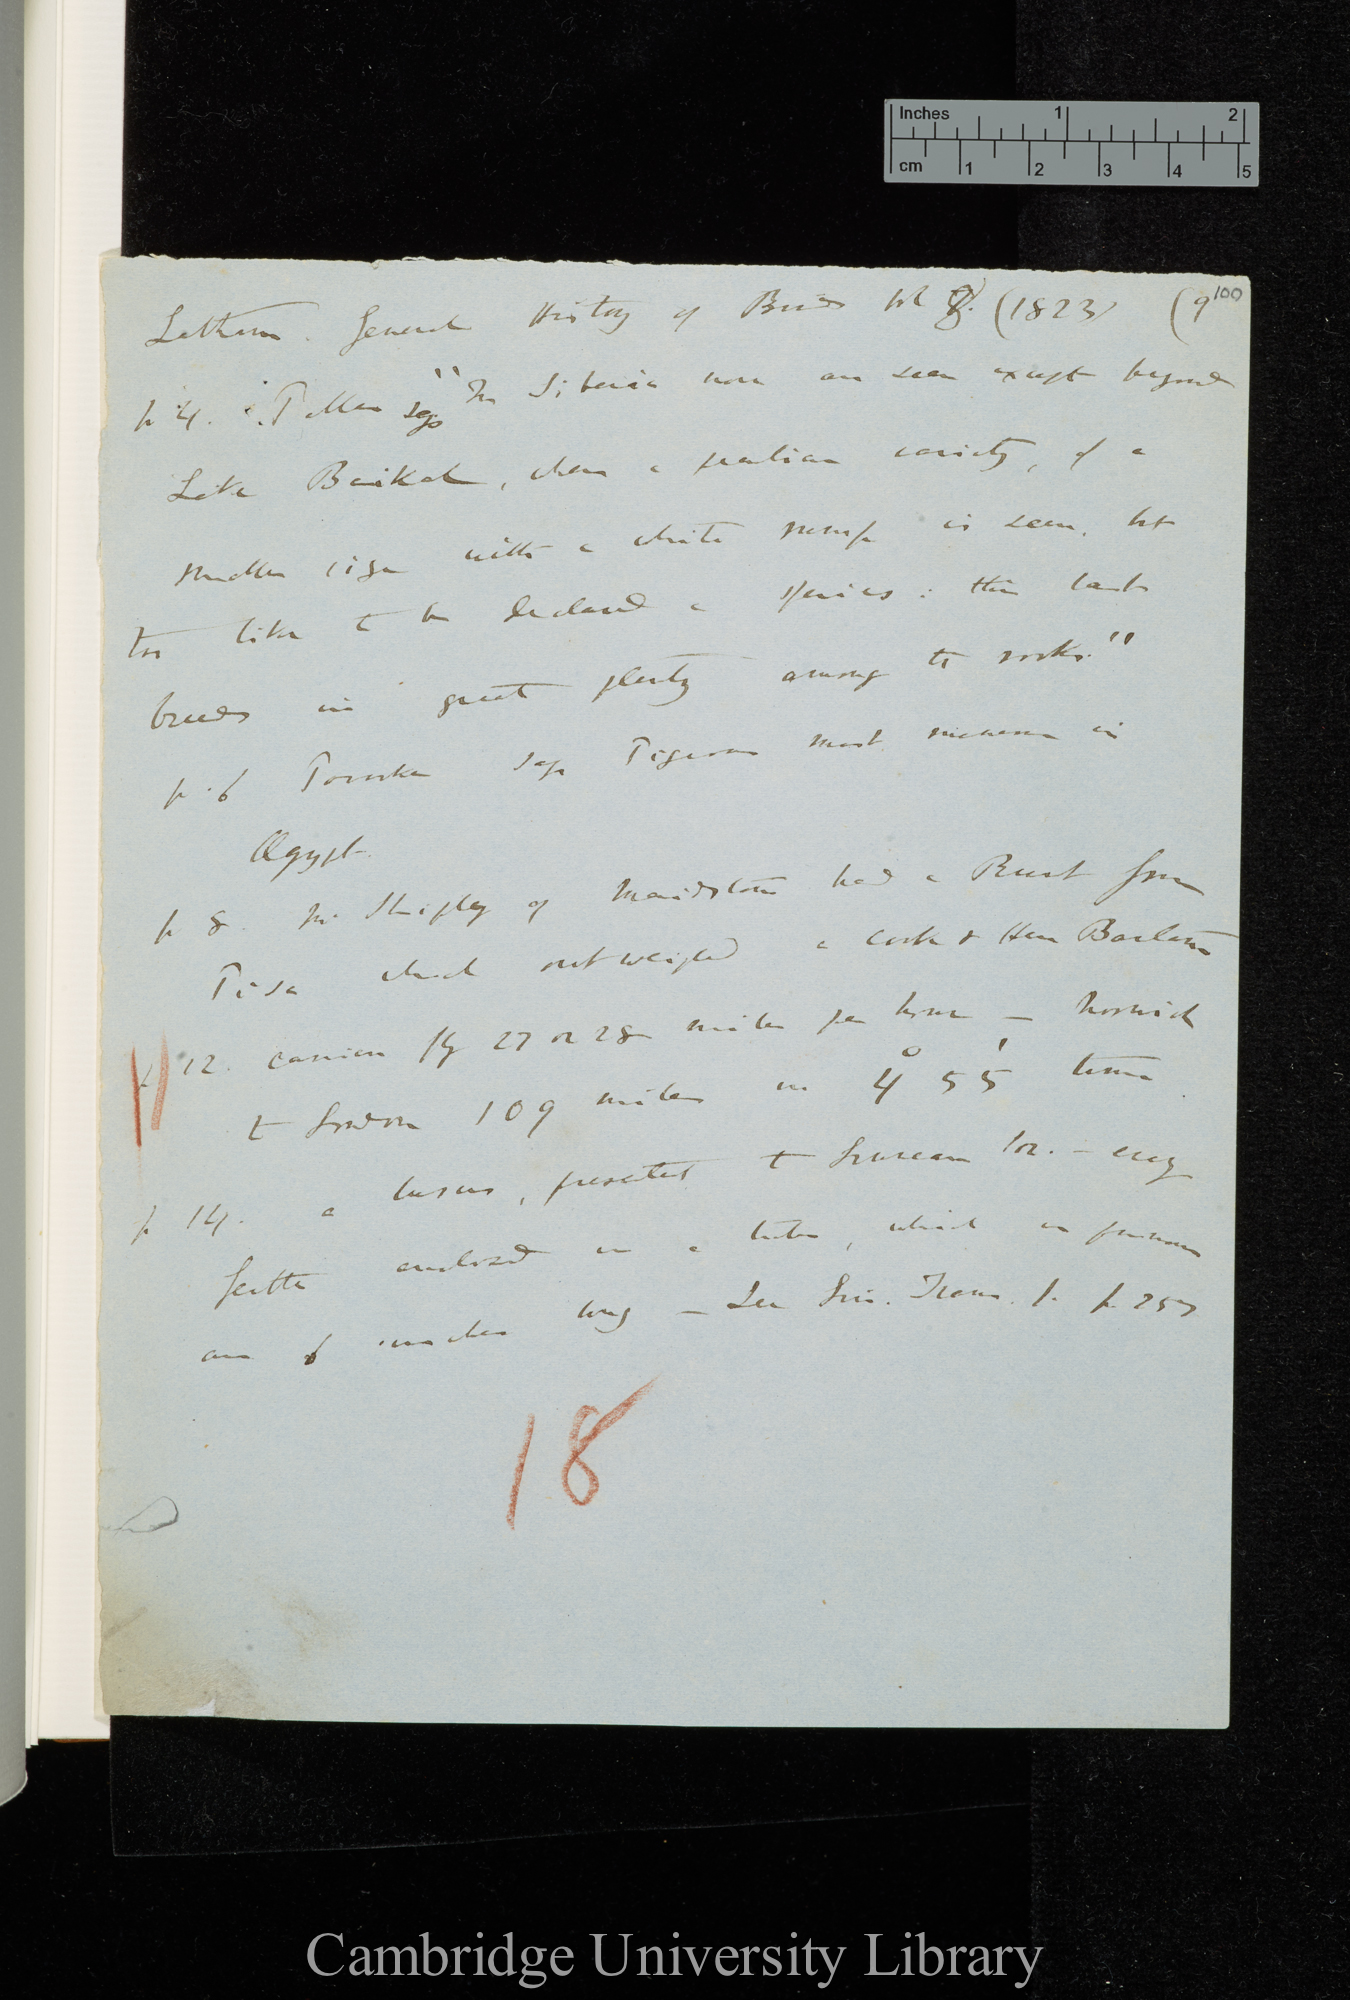 Inches 1 2
cm 1 2 3 4 5
100
Latham. General History of Birds vol 8. (1823) (9
p 4. Pallas says "In Siberia none are seen except beyond
Lake Baikal, where a peculiar variety, of a
smaller size with a white rump is seen, but
too like to be declared a species: this last
breeds in great plenty among the rocks."
p. 6 says Pigeons most numerous in
Ægypt.
p 8. Mr Shipley of Maidstone had a Runt from
Pisa which outweighed a cock & Hen Bantam
p 12. carrier fly 27 or 28 miles per hour — Norwich
to London 109 miles in 4° 55' time
p 14. a lusus, presented to Linnean Soc. — every
feather enclosed in a tube, which in primaries
are 6 inches long — See Lin. Trans. p. 257
18
Cambridge University Library